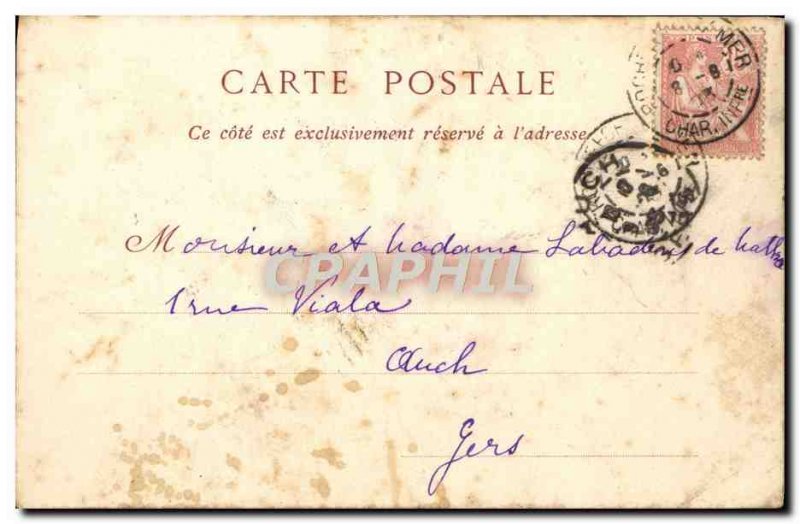 CARTE POSTALE
Ce côté est exclusivement réservé à l'adresse
MER
CHAR. INFRE
AUCH
Monsieur et Madame de
CPAPHIL
1 rue Viala
Auch
Gers